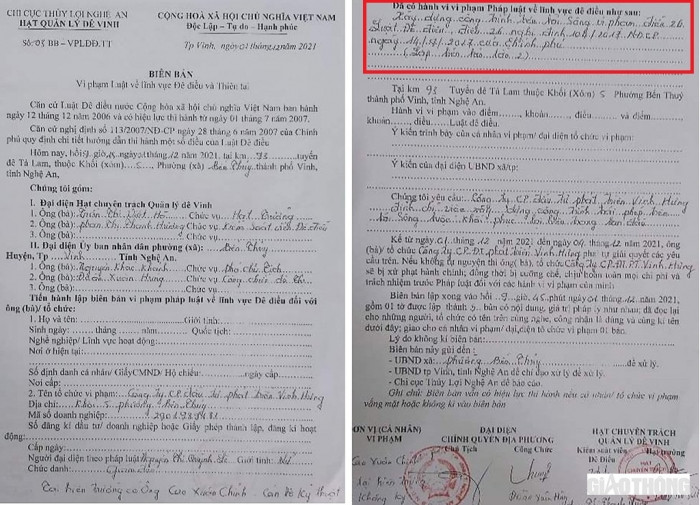 CHI CỤC THỦY LỢI NGHỆ AN
HẠT QUẢN LÝ ĐÊ VINH
Số: 05 BB - VPLĐĐ.TT
CỘNG HOÀ XÃ HỘI CHỦ NGHĨA VIỆT NAM
Độc Lập - Tự do - Hạnh phúc
Tp Vinh, ngày 01 tháng 12 năm 2021
BIÊN BẢN
Vi phạm Luật về lĩnh vực Đê điều và Thiên tai
Căn cứ Luật Đê điều nước Cộng hòa xã hội chủ nghĩa Việt Nam ban hành
ngày 12 tháng 12 năm 2006 và có hiệu lực thi hành từ ngày 01 tháng 7 năm 2007.
Căn cứ nghị định số 113/2007/NĐ-CP ngày 28 tháng 6 năm 2007 của Chính
phủ quy định chi tiết hướng dẫn thi hành một số điều của Luật Đê điều
Hôm nay, hồi 9 giờ, 15 ngày 01 tháng 12 năm 2021. tại km 93 tuyến
đê Tả Lam, thuộc Khối (xóm) 5, Phường (xã) Bến Thủy thành phố Vinh,
tỉnh Nghệ An.
Chúng tôi gồm:
I. Đại diện Hạt chuyên trách Quản lý đê Vinh
1. Ông (bà): Trần Thị Việt Hà Chức vụ Hạt trưởng
2. Ông (bà): Phan Thị Thanh Hương Chức vụ Kiểm soát viên Đê điều
II. Đại diện Ủy ban nhân dân phường (xã): Bến Thủy
Huyện, Tp Vinh Tỉnh Nghệ An.
1. Ông (bà): Nguyễn Khắc Khánh Chức vụ phó chủ tịch
2. Ông (bà): Xuân Hùng Chức vụ: Công chức
Tiến hành lập biên bản vi phạm pháp luật về lĩnh vực Đê điều đối với
ông (bà)/ tổ chức:
1. Họ và tên: Giới tính:
Sinh ngày: tháng năm Quốc tịch:
Nghề nghiệp/ Lĩnh vực hoạt động:
Nơi ở hiện tại:
Số định danh cá nhân/ GiấyCMND/ Hộ chiếu: ngày cấp
Nơi cấp:
2. Tên tổ chức vi phạm: Công ty CP đầu tư phát triển Vinh Hưng
Địa chỉ: Khối 5 phường Bến Thủy
Mã số doanh nghiệp:
Số đăng kí đầu tư/ doanh nghiệp hoặc Giấy phép thành lập, đăng kí hoạt
động:
Cấp ngày: Nơi cấp
Người đại diện theo pháp luật: Nguyễn Thị Quỳnh Giới tính: Nữ
Chức danh: Giám đốc
Tại hiện trường có ông Cao Xuân Chính - Cán bộ kỹ thuật
Đã có hành vi vi phạm Pháp luật về lĩnh vực đê điều như sau:
Xây dựng công trình trên bãi Sông vi phạm điều 26
Luật Đê điều, điều 26 nghị định 104/2017 NĐ.CP
ngày 14/9/2017 của Chính phủ
(Lập biên bản lần 2)
Tại km 93 Tuyến đê Tả Lam thuộc Khối (Xóm) 5 Phường Bến Thuỷ
thành phố Vinh, tỉnh Nghệ An.
Hành vi vi phạm vào điểm, khoản, điều, và điểm
khoản, điều Luật đê điều.
Ý kiến trình bày của cá nhân vi phạm/ đại diện tổ chức vi phạm:
Ý kiến của đại diện UBND xã/p:
Chúng tôi yêu cầu: Công ty CP đầu tư phát triển Vinh Hưng
đình chỉ việc xây dựng công trình trái phép trên
bãi Sông thuộc khối
Kể từ ngày 01 12 năm 2021 đến ngày 04 tháng 12 năm 2021, ông
(bà)/ tổ chức Công ty CP. ĐT phát triển Vinh Hưng phải tự giải quyết các yêu
cầu trên. Nếu không tự nguyện thì ông(bà), tổ chức Công ty CP.ĐT.PT. Vinh Hưng
sẽ bị xử phạt hành chính; đồng thời bị cưỡng chế, chịu hoàn toàn mọi chi phí và
trách nhiệm trước Pháp luật đối với các hành vi vi phạm của mình
Biên bản lập xong vào hồi 9 giờ, 45 phút ngày 01 tháng 12 năm 2021,
gồm 01 tờ được lập thành 5 bản có nội dung, giá trị pháp lý như nhau; đã đọc lại
cho những người, tổ chức có tên trên cùng nghe, công nhận là đúng và cùng kí tên
dưới đây; giao cho cá nhân vi phạm/ đại diện tổ chức vi phạm 01 bản.
Lý do không kí biên bản:
Biên bản này gửi đến:
- UBND xã/ phường Bến Thủy để xử lý.
- UBND tp Vinh, tỉnh Nghệ An để chỉ đạo xử lý đề xử lý.
- Chi cục Thủy Lợi Nghệ An để báo cáo.
Ghi chú: Biên bản vẫn có hiệu lực thi hành nếu cá nhân/ tổ chức vi phạm
vắng mặt hoặc không kí vào biên bản
ĐẠI DIỆN
ĐƠN VỊ (CÁ NHÂN) VI PHẠM
CHÍNH QUYỀN ĐỊA PHƯƠNG
Chủ Tịch Công Chức
HẠT CHUYÊN TRÁCH
QUẢN LÝ ĐÊ VINH
Kiểm soát viên Đê Điều
Hạt trưởng
Cao Xuân Chính
tại hiện trường
Không ký
GIAO THÔNG